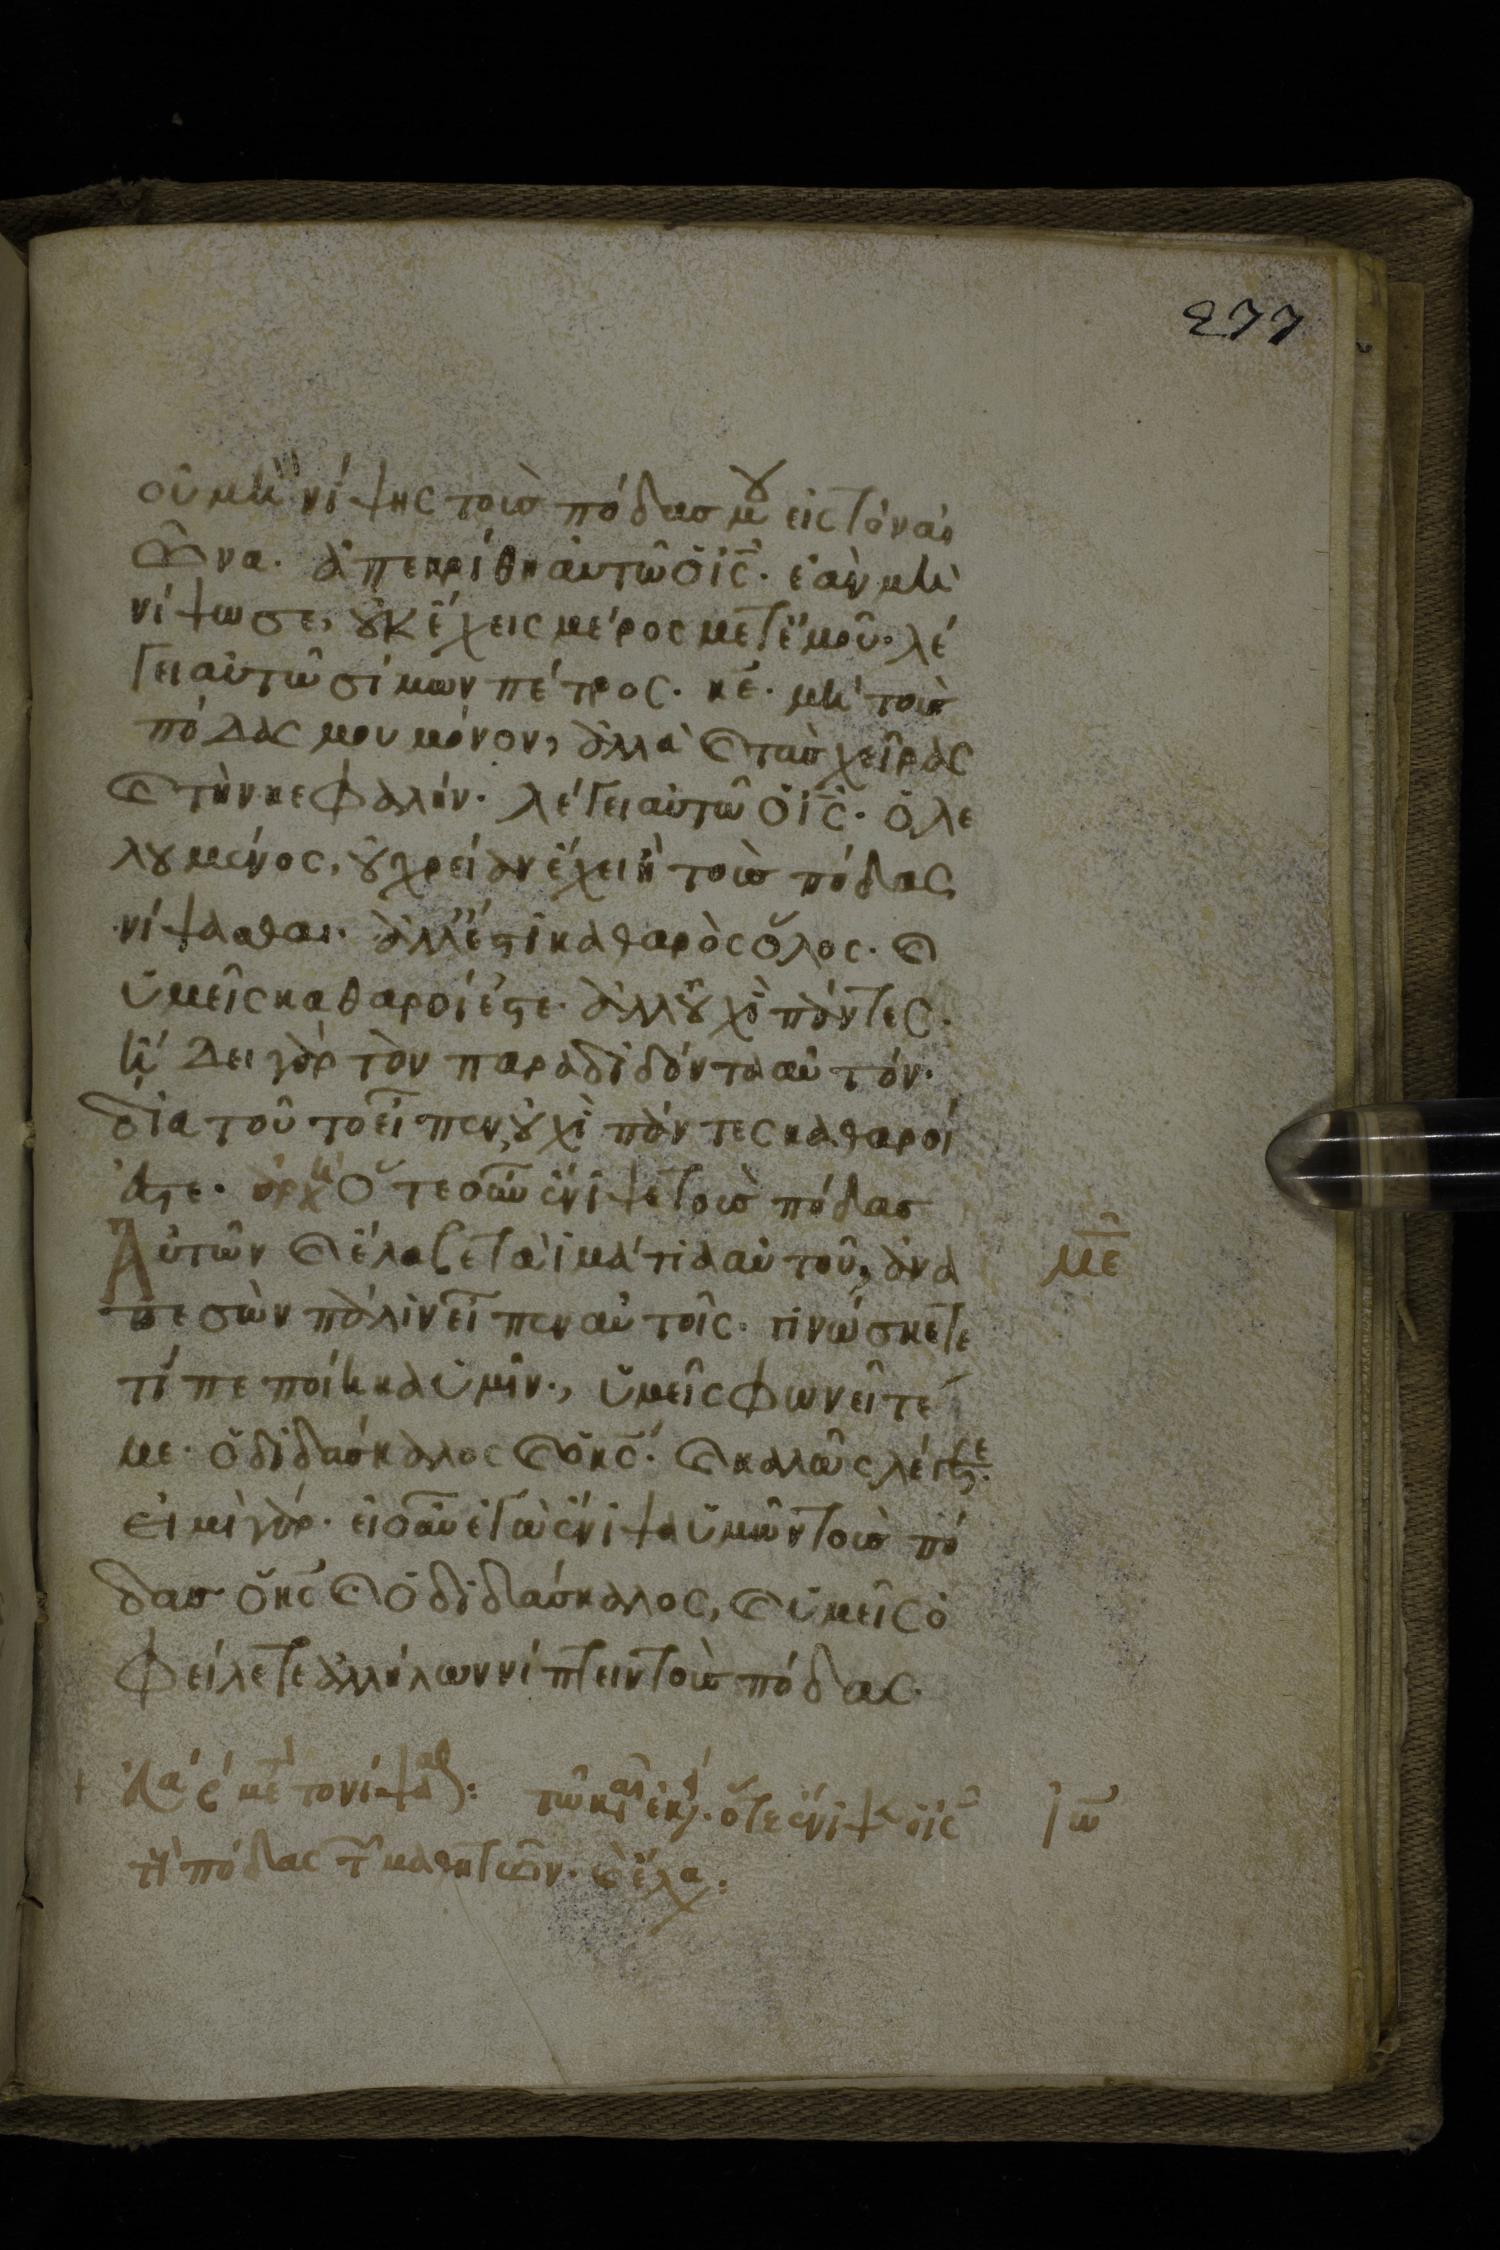 277
οὐ μὴ νίψης τοὺς πόδας μου εἰς τὸν αἰ
ῶνα. ἀπεκρίθη αὐτῶ ὁ ἰς̄. ἐὰν μὴ
νίψω σε, οὐκ ἔχεις μέρος μετ ἐμοῦ. λέ
γει αὐτῶ σίμων πέτρος. κε̄. μὴ τοὺς
πόδας μου μόνον, ἀλλὰ καὶ τὰς χεῖρας
καὶ τὴν κεφαλήν. λέγει αὐτῶ ὁ ἰς̄. ὁ λε
λουμένος, οὐ χρείαν ἔχει ἢ τοὺς πόδας
νίψασθαι. ἀλλ' ἔστι καθαρὸς ὅλος. καὶ
ὑμεῖς καθαροί ἐστε. ἀλλ οὐχὶ πάντες.
ἤδει γὰρ τὸν παραδιδόντα αὐτόν.
διὰ τοῦτο εἶπεν, οὐχὶ πάντες καθαροί
ἐστε. ἀρχὴ Ὅτε οὖν ἔνιψε τοὺς πόδας
Αὐτῶν καὶ ἔλαβε τὰ ἱμάτια αὐτοῦ, ἀνα με̄
πεσὼν πάλιν εἶπεν αὐτοῖς. γινώσκετε
τί πεποίηκα ὑμῖν., ὑμεῖς φωνεῖτέ
με. ὁ διδάσκαλος καὶ ὁ κς̄. καὶ καλῶς λέγετε.
εἰμὶ γάρ. εἰ οὖν ἐγὼ ἔνιψα ὑμῶν τοὺς πό
δας ὁ κς̄ καὶ ὁ διδάσκαλος, καὶ ὑμεῖς ὀ
φείλετε ἀλλήλων νίπτειν τοὺς πόδας.
τῶ και ἐκ. ὅτε ἔνιψ ὁ ἰς̄ ἰω
πόδας τ μαθητῶν. καὶ ἔλα: